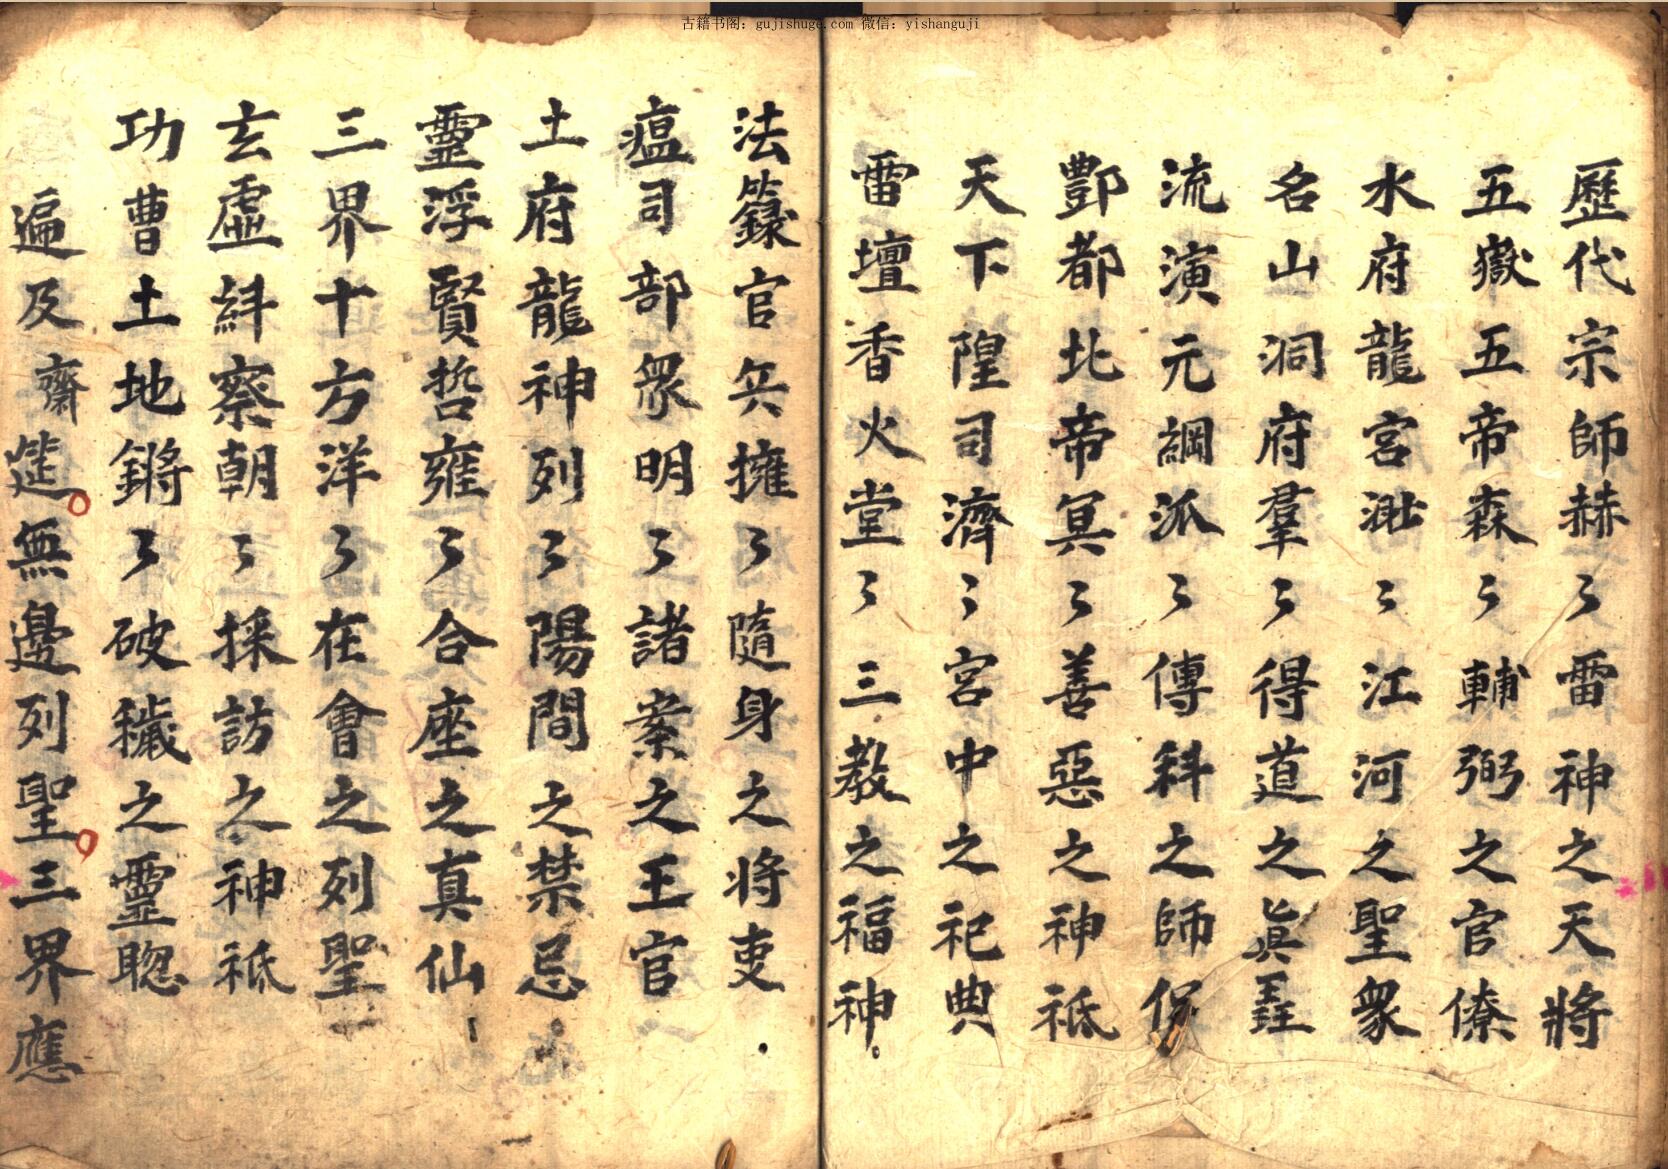 古籍书阁：gujishuge.com 微信：yishanguji
歷代宗師赫〻雷神之天將
五嶽五帝森〻輔弼之官僚
水府龍宮渺〻江河之聖衆
名山洞府羣〻得道之眞
流演元綱派〻傳科之師保
酆都北帝冥〻善惡之神祇
天下隍司濟〻宮中之祀典
雷壇香火堂〻三教之福神
法籙官兵擁〻隨身之將吏
瘟司部衆明〻諸案之王官
土府龍神列〻陽間之禁忌
靈浮賢哲雍〻合座之真仙
三界十方洋〻在會之列聖
玄虛糾察朝〻採訪之神祇
功曹土地鏘〻破穢之靈聰
遍及齋筵無邊列聖三界應